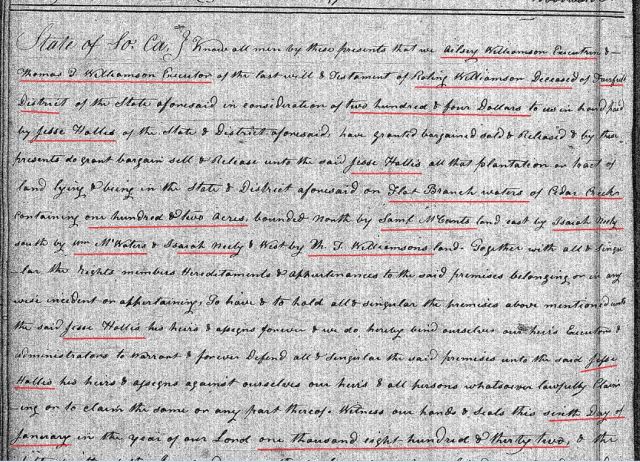 State of So. Ca. } Know all men by these presents that we Ailsey Williamson Executrix &
Thomas T Williamson Executor of the last will & Testament of Roling Williamson Deceased of Fairfield
District of the State aforesaid in consideration of two hundred & four Dollars to us in hand paid
by Jesse Hallis of the State & District aforesaid. have granted bargained sold & Released & by these
presents do grant bargain sell & Release unto the said Jesse Hallis all that plantation or tract of
land lying & being in the State & District aforesaid on Flat Branch waters of Cedar Creek
containing one hundred & two Acres. bounded North by Saml McCants land east by Isaiah Neely
south by Wm McWaters & Isaiah Neely & West by Th. T Williamsons land. Together with all & singu
lar the Rights members Hereditaments & Appurtenances to the said premises belonging or in any
wise incident or appertaining, To have & to hold all & singular the premises above mentioned unto
the said Jesse Hallis his heirs & assigns forever & we do hereby bind ourselves our heirs Executors &
administrators to warrant & forever Defend all & singular the said premises unto the said Jesse
Hallis his heirs & assigns against ourselves our heirs & all persons whatsoever lawfully Claim
ing or to claim the same or any part thereof. Witness our hands & seals this sixth Day of
January in the year of our Lord one thousand eight hundred & thirty two, & the